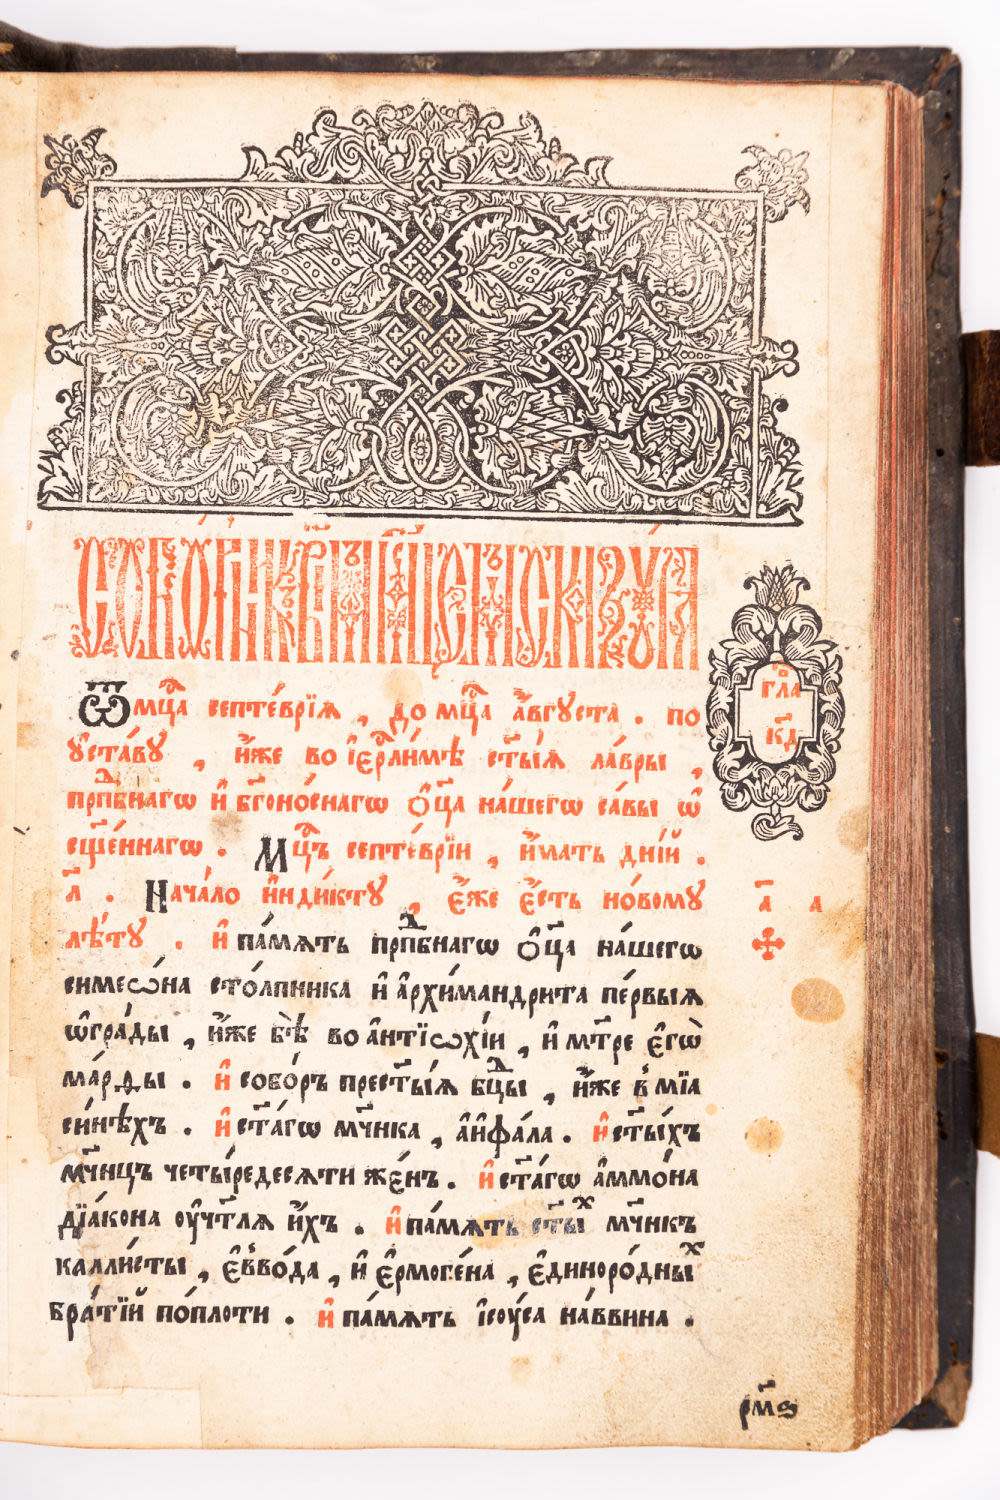 соборникъ м҃і мцемъ скрꙋга
Ѿмцⷭ҇а септе́врїѧ , до мцⷭ҇а а҆́вгꙋста . по
ꙋ҆ста́вꙋ , и҆́же во і҆ерⷭ҇ли́мѣ ст҃ы́ѧ ла́вры ,
прпⷣбнагѡ и҆ бг҃оно́снагѡ ѻ҆ц҃а на́шегѡ са́вы ѡ҆
сщ҃е́ннагѡ . Мцⷭ҇ъ септе́врїи , и҆́мать дні́й .
л҃ . Нача́ло и҆нди́ктꙋ , е҆́же е҆́сть но́вомꙋ
лѣ́тꙋ . и҆ па́мѧть прпⷣбнагѡ ѻ҆ц҃а на́шегѡ
симеѡ́на сто́лпника и҆ а҆рхїмандри́та пе́рвыѧ
ѡ҆гра́ды , и҆́же бѣ̀ во а҆нтїѡхі́и , и҆ мт҃ре є҆гѡ̀
ма́рды . и҆ собо́ръ прест҃ы́ѧ бцⷣы , и҆́же в̾ мїа
си́нѣхъ . и҆ ст҃а́гѡ мч҃нка , а҆иѳа́ла . и҆ ст҃ы́хъ
мч҃ницъ четы́редесѧти же́нъ . и҆ ст҃а́гѡ а҆ммо́на
дїа́кона ᲂу҆чт҃лѧ и҆́хъ . и҆ па́мѧть ст҃ыⷯ мч҃никъ
калли́сты , є҆в̾во́да , и҆ є҆рмоге́на , є҆диноро́дныⷯ
бра́тїй по́плоти . и҆ па́мѧть і҆сᲂу́са на́ввина .
гла
к҃д
а҃ а
рм҃ѕ